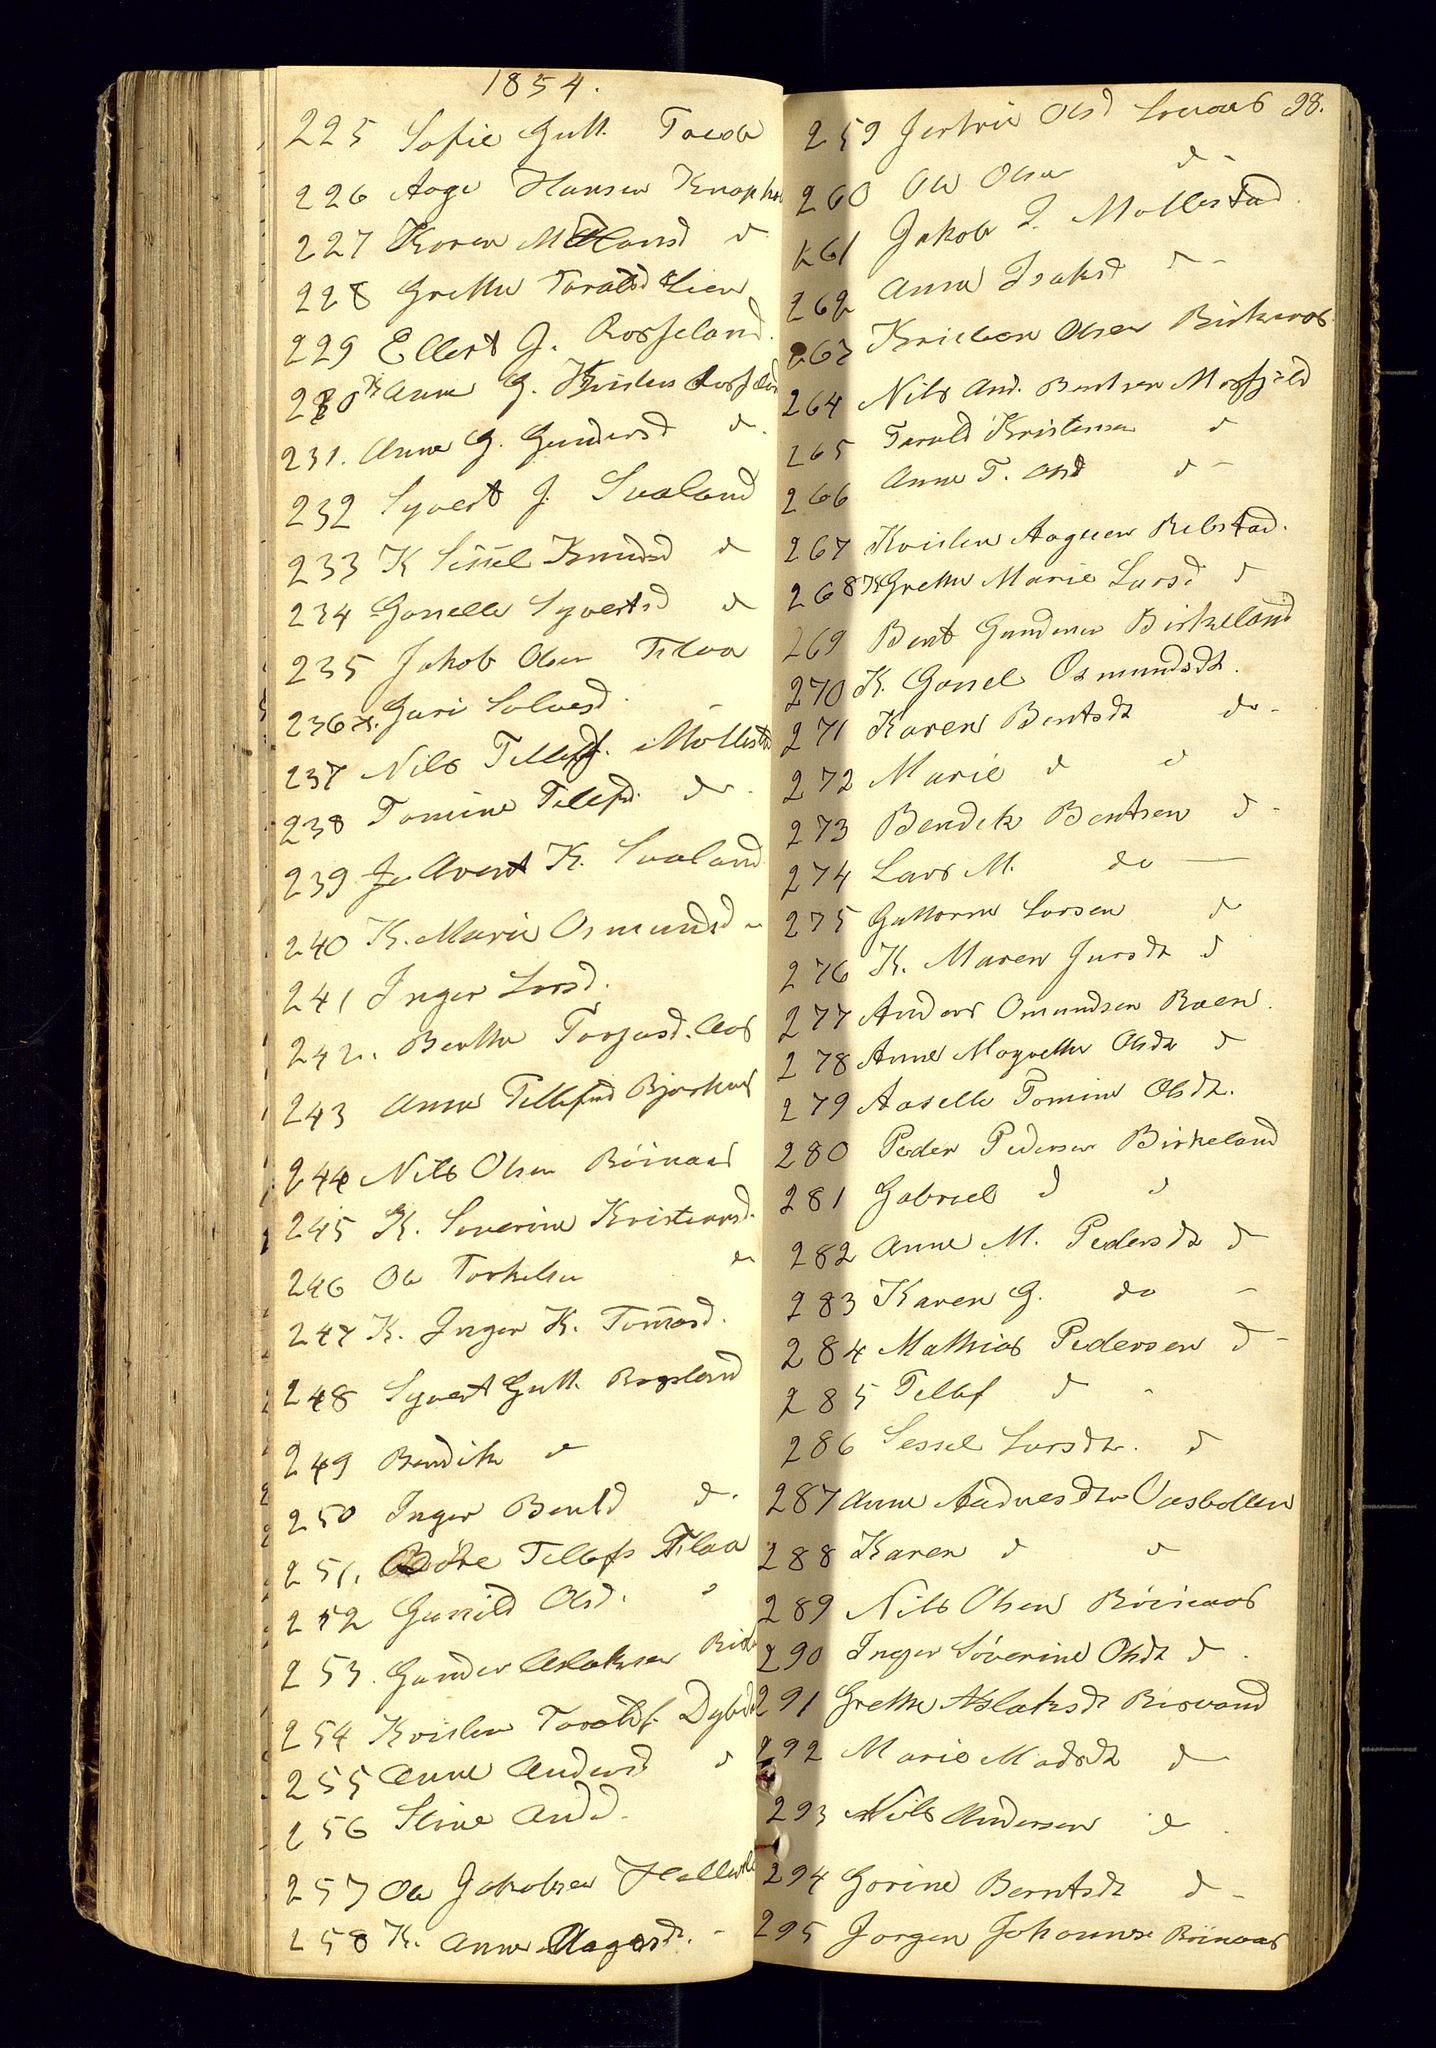 1854.
225 Sofie Gutt. Taeob
226 Aage Hansen Knaph
227 Karen M Hansd d
228 Grethe Taraldsd Lien
229 Ellert G. Rosseland.
230 K Anne G. Kristens Rosseland
231. Anne G. Gundersd d.
232 Syvert J. Sualand
233 K Sissel Knudsd d
234 Gonelle Syvertsd d
235 Jakob Olsen Flaa
236 K. Guri Salvesd.
237 Nils Tellefs. Mollestad
238 Tomine Tellefsd. do.
239 Avent K. Sualand
240 K. Marie Osmundsd
241 Inger Larsd.
242. Berthe Torjusd. Aas
243 Anne Tellefsd Bjorkaas
244 Nils Olsen Röinaas
245 K. Severine Kristensd.
246 Ole Torkelsen do
247 K. Inger K. Tomasd.
248 Syvert Gutt. Bosland
249 Bendik d
250 Inger Bentsd d.
251. Böre Tellefs Flaa
252 Gunild Olsd. "
253. Gunder Aslaksen
254 Kristen Taraldss.
255 Anne Andersd d
256 Stine Andd.
257 Ole Jakobsen
258 K. Anne Aagesd. -
28.
259 Jertrü Olsd
260 Ole Olsen d -
261 Jakob I. Mollestad.
262 Anne Isaksd d -
263 Kristen Olsen Birkenes
264 Nils And. Bentsen Mosfjeld
265 Tarald Kristensen d
266 Anne T. Olsd d -
267 Kristen Aagesen Rebstad.
268 K Grethe Marie Larsd d
269 Bent Gundersen Birkeland
270 K. Gonel Osmundsdt.
271 Karen Bentsdt do -
272 Marie d d
273 Bendik Bentsen d -
274 Lars M. do —
275 Guttorm Larsen d
276 K. Maren Jursdt d
277 Anders Omundsen Roen.
278 Anne Magrethe Olsdt d
279 Aaselle Tomine Olsdt.
280 Peder Pedersen Birkeland
281 Gabriel d d
282 Anne M. Pedersdt d
283 Karen G. do -
284 Mathias Pedersen d -
285 Tellef d -
286 Sessel Larsdt. d
287 Anne Aadnesdtr Oasbollen
288 Karen d d
289 Nils Olsen Röinaas
290 Inger Söverine Olsdt d.
291 Grethe Aslaksdt Risvand
292 Marie Madsdt d
293 Nils Andersen d.
294 Gorine Berntsdt d -
295 Jorgen Johannes Röinaas